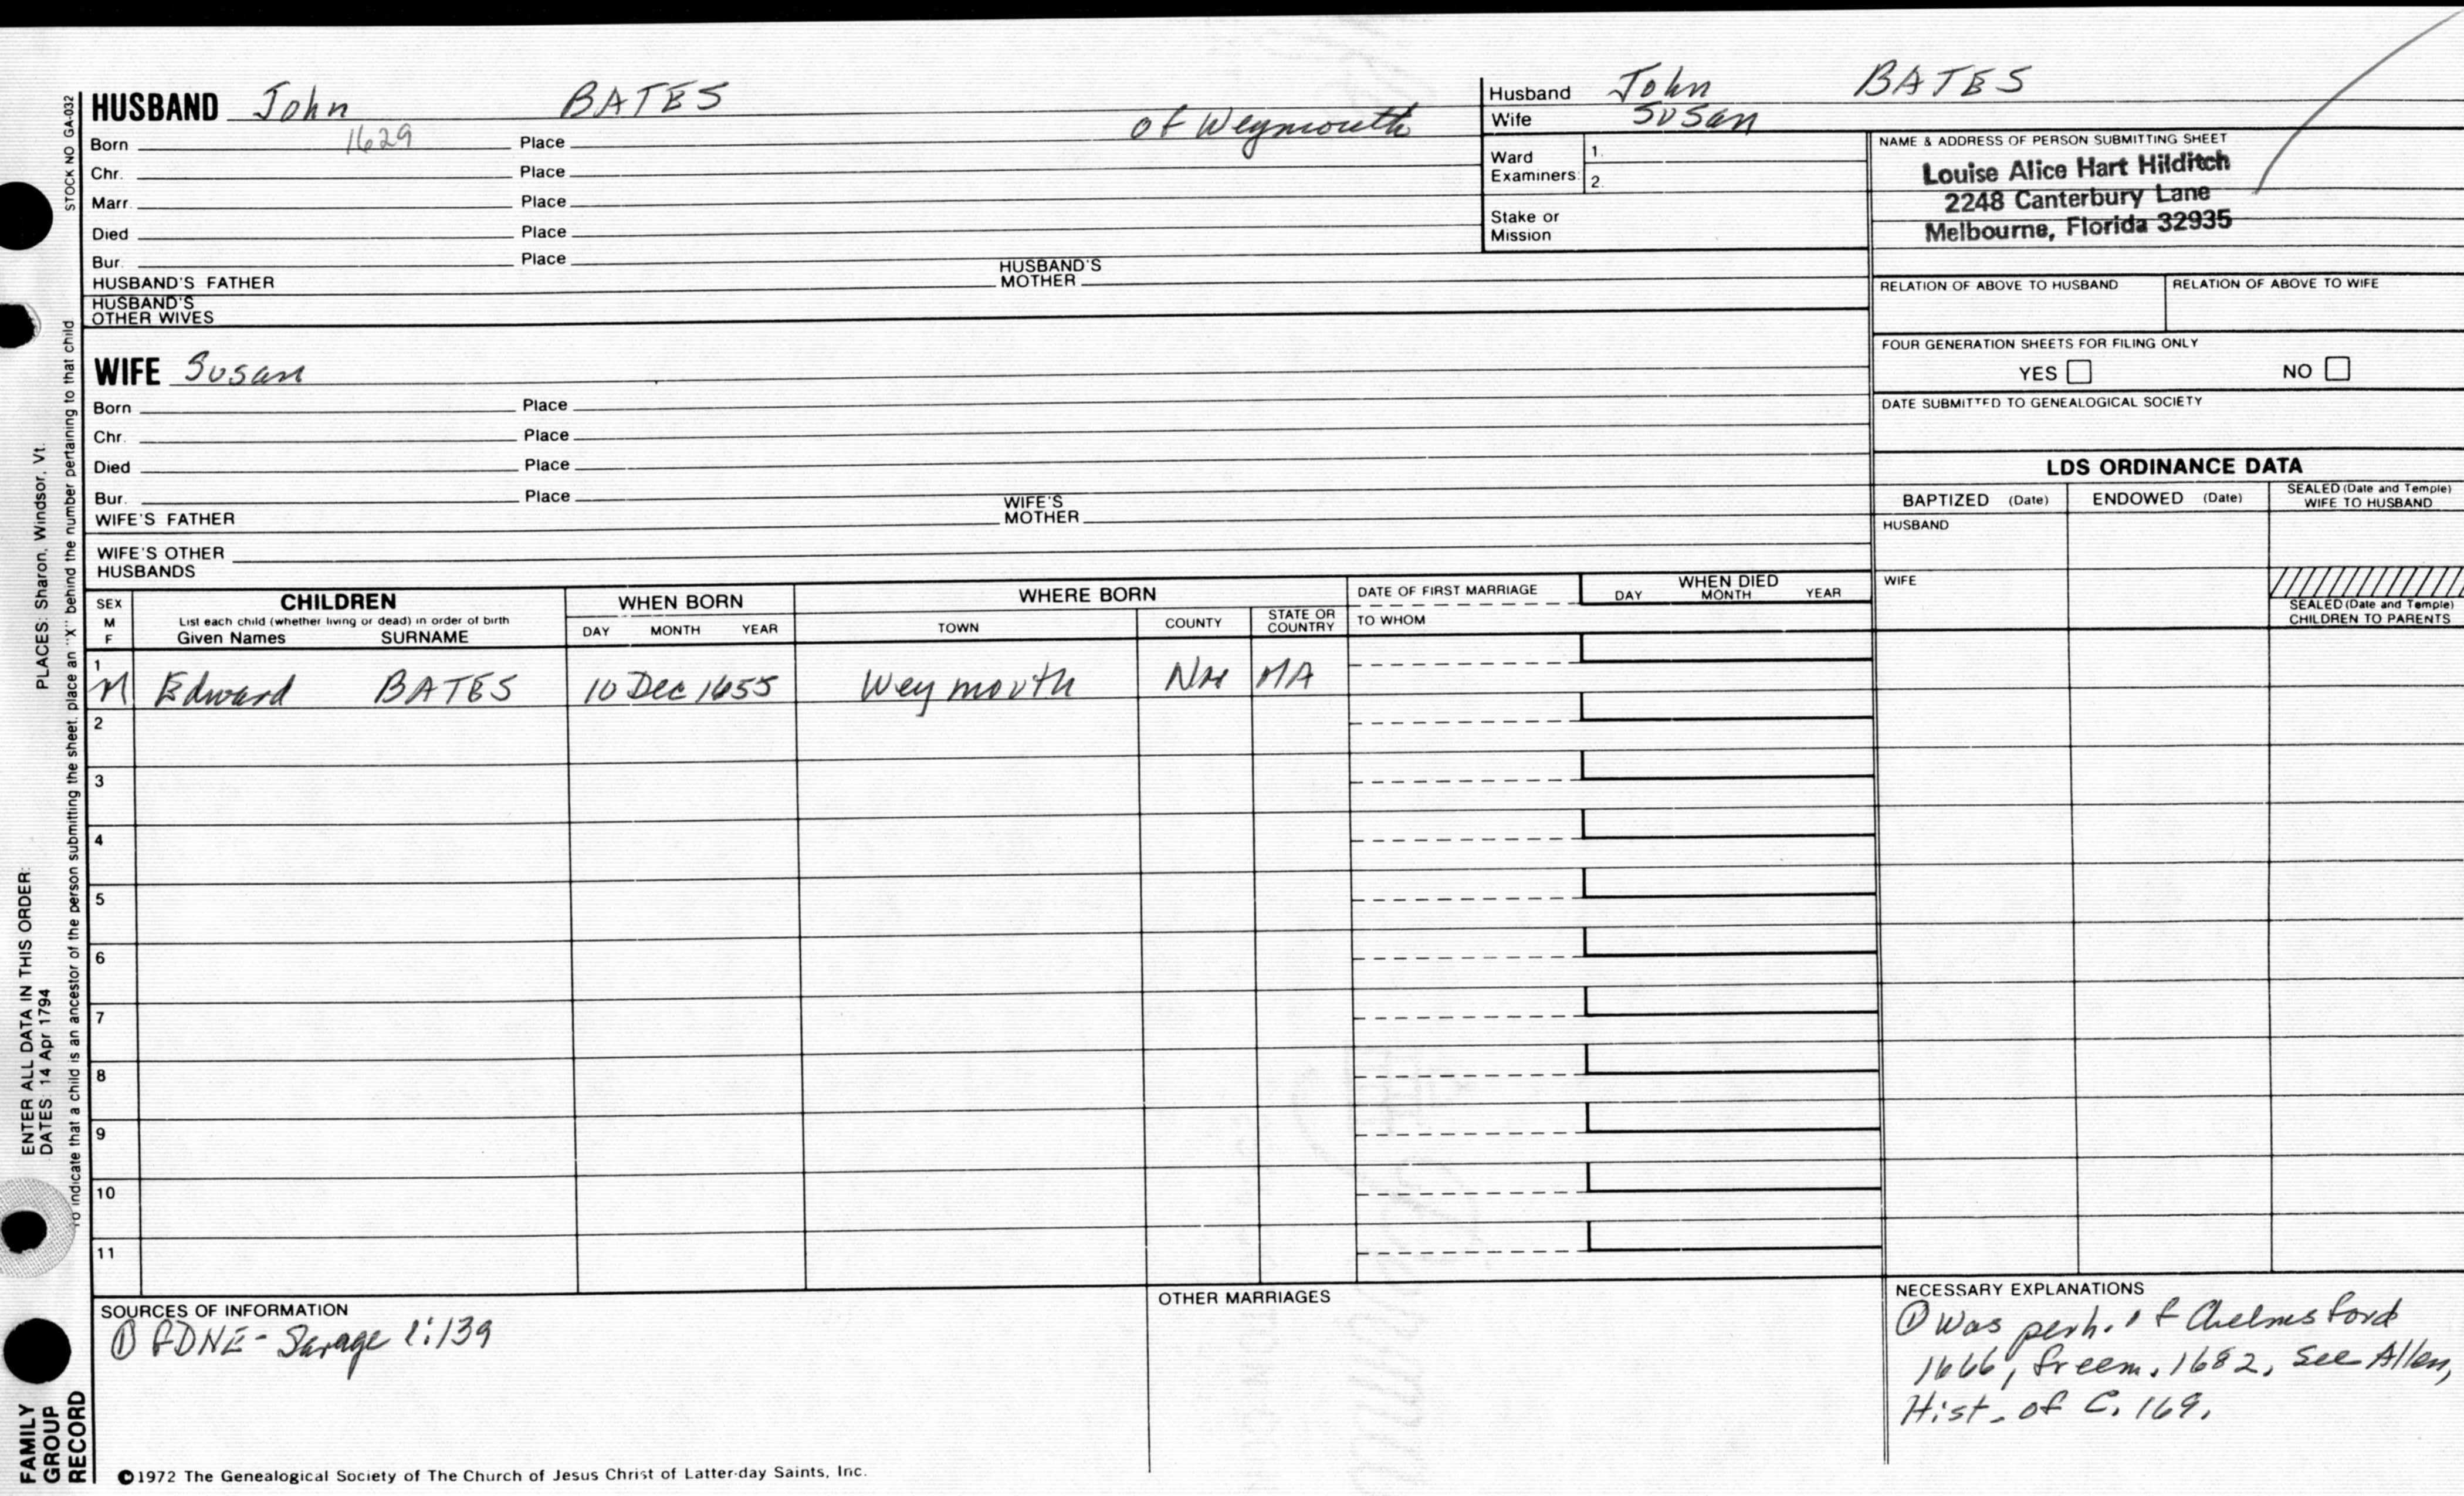 STOCK NO GA-032
PLACES: Sharon, Windsor, Vt.
ENTER ALL DATA IN THIS ORDER:
DATES: 14 Apr 1794
To indicate that a child is an ancestor of the person submitting the sheet, place an "X" behind the number pertaining to that child
FAMILY
GROUP
RECORD
HUSBAND John BATES
Born 1629 Place of Weymouth
Chr. Place
Marr. Place
Died Place
Bur. Place
HUSBAND'S FATHER HUSBAND'S MOTHER
HUSBAND'S
OTHER WIVES
WIFE Susan
Born Place
Chr. Place
Died Place
Bur. Place
WIFE'S FATHER WIFE'S MOTHER
WIFE'S OTHER
HUSBANDS
Husband John BATES
Wife Susan
Ward
Examiners: 1.
2.
Stake or
Mission
NAME & ADDRESS OF PERSON SUBMITTING SHEET
Louise Alice Hart Hilditch
2248 Canterbury Lane
Melbourne, Florida 32935
RELATION OF ABOVE TO HUSBAND RELATION OF ABOVE TO WIFE
FOUR GENERATION SHEETS FOR FILING ONLY
YES NO
DATE SUBMITTED TO GENEALOGICAL SOCIETY
LDS ORDINANCE DATA
BAPTIZED (Date) ENDOWED (Date) SEALED (Date and Temple)
WIFE TO HUSBAND
HUSBAND
WIFE
SEALED (Date and Temple)
CHILDREN TO PARENTS
SEX
M
F
CHILDREN
List each child (whether living or dead) in order of birth
Given Names SURNAME
WHEN BORN
DAY MONTH YEAR
WHERE BORN
TOWN COUNTY STATE OR
COUNTRY
DATE OF FIRST MARRIAGE
TO WHOM
WHEN DIED
DAY MONTH YEAR
1
M Edward BATES 10 Dec 1655 Weymouth MA
2
3
4
5
6
7
8
9
10
11
SOURCES OF INFORMATION
① GDNE - Savage 1:139
OTHER MARRIAGES
NECESSARY EXPLANATIONS
① Was perh. of Chelmsford
1666, freem. 1682, See Allen,
Hist. of C. 169.
©1972 The Genealogical Society of The Church of Jesus Christ of Latter-day Saints, Inc.